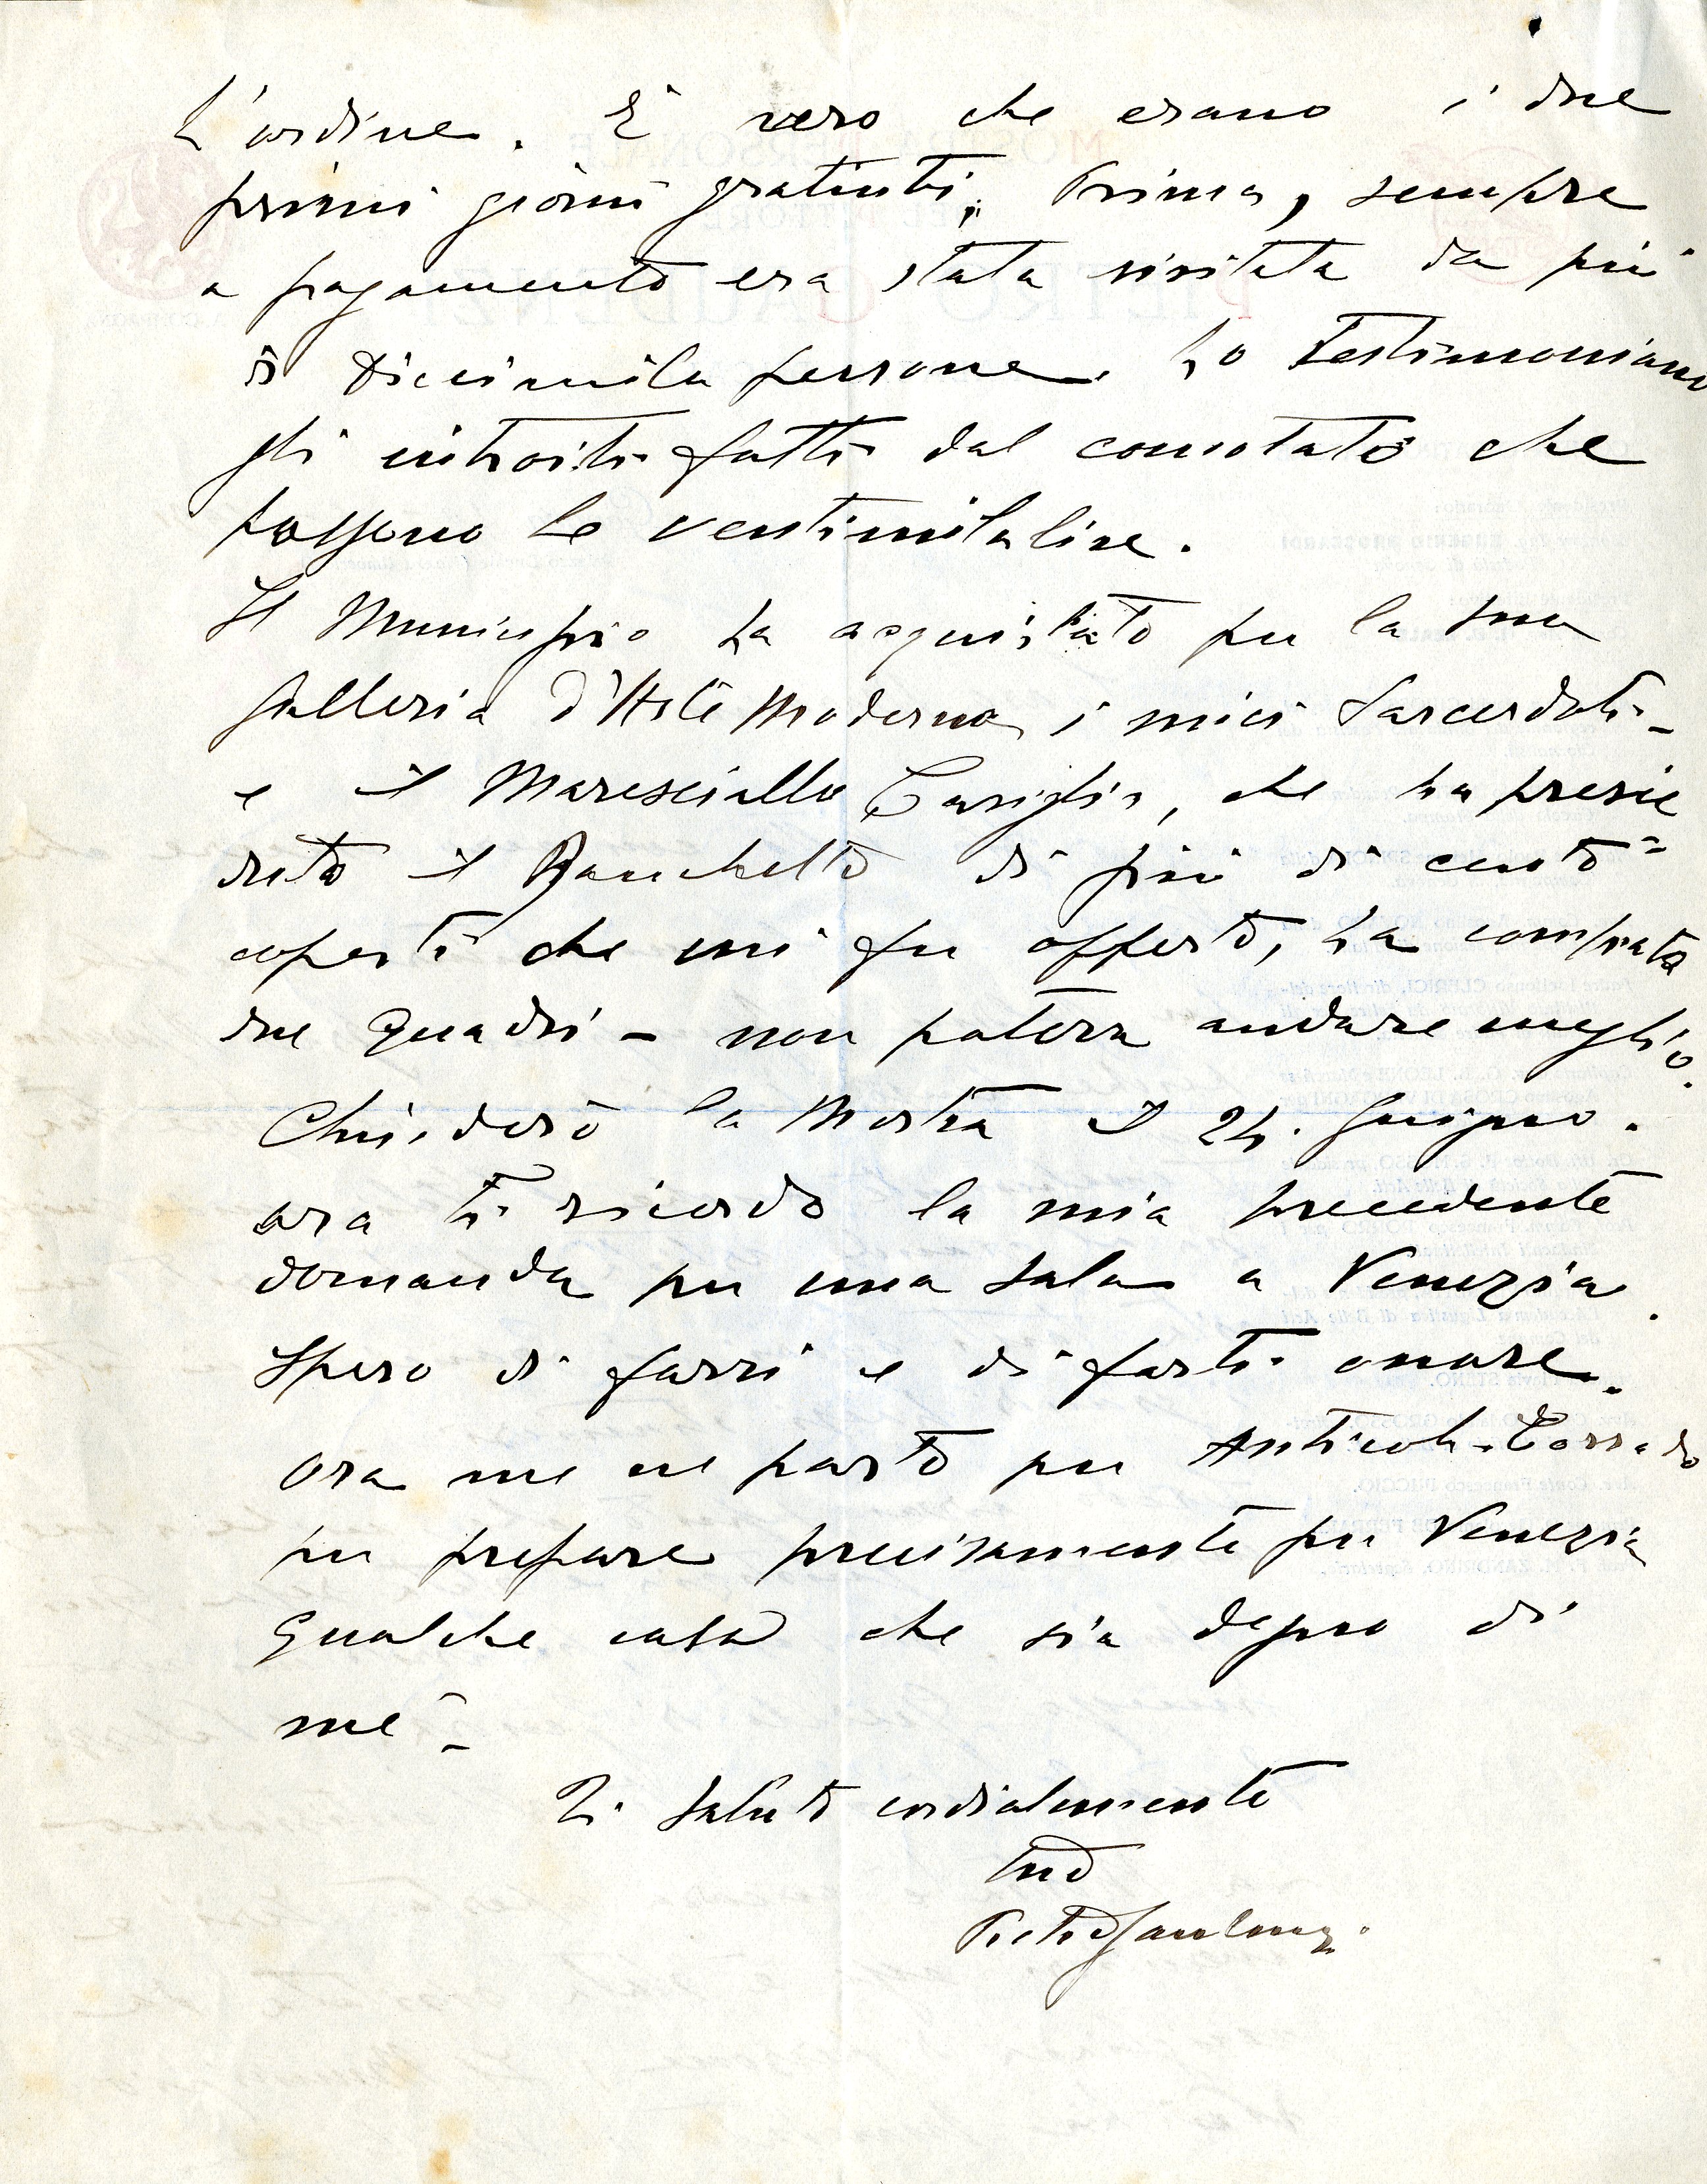 L'ordine. È vero che erano i due
primi giorni gratuiti; Prima, sempre
a pagamento era stata visitata da più
di diecimila persone. Lo testimoniano
gli introiti fatti dal comitato che
passano le ventimilalire.
Il Municipio ha acquistato per la sua
Galleria d'Arte Moderna i miei Sacerdoti -
e il Maresciallo Caviglia, che ha presie
duto il Banchetto di più di cento
coperti che mi fu offerto, ha comprato
due quadri - non poteva andare meglio.
Chiuderò la Mostra il 24. Giugno.
ora ti ricordo la mia precedente
domanda per una sala a Venezia.
Spero di farvi e di farti onore.
Ora me ne parto per Anticoli-Corrado
per prepare precisamente per Venezia
qualche cosa che sia degna di
me -
Ti saluto cordialmente
tuo
Pietro Gaudenzi